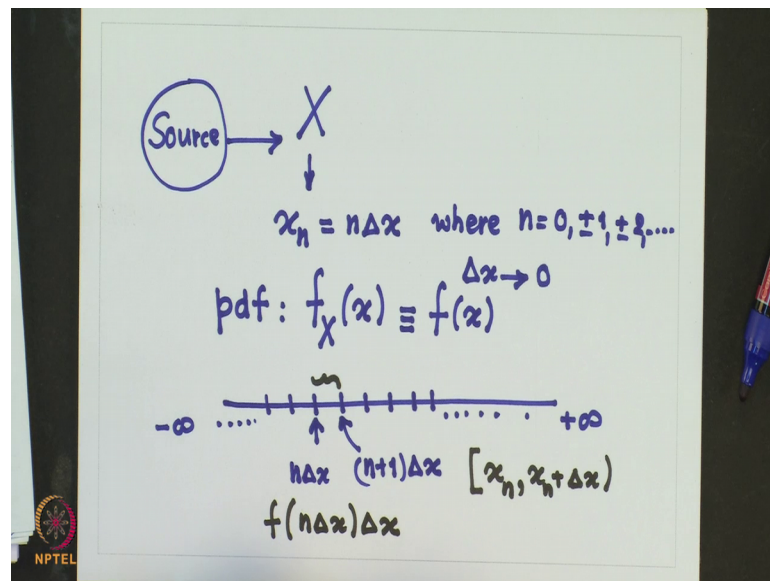 Source → X
↓
xₙ = nΔx where n = 0, ±1, ±2, ....
Δx → 0
pdf : f_X(x) ≡ f(x)
-∞ ..... ...... . +∞
nΔx (n+1)Δx [xₙ, xₙ+Δx)
f(nΔx)Δx
NPTEL